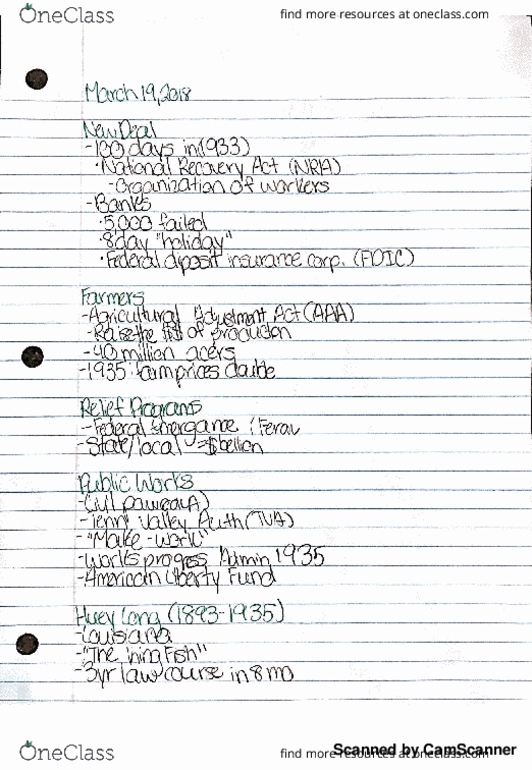 OneClass
find more resources at oneclass.com
March 19, 2018
New Deal
-100 days in (1933)
·National Recovery Act (NRA)
-Organization of workers
-Banks
·5,000 failed
·8 day "holiday"
·Federal diposit insurance corp. (FDIC)
Farmers
-Agricultural Adjustment Act (AAA)
-Raise the of production
-40 million acers
-1935 farm prices double
Relief Programs
-Federal
-State/local
Public Works
-Civil
-Tenn Valley Auth (TVA)
-"Make-work"
-Works progress Admin 1935
-American Liberty Fund
Huey Long (1893-1935)
-Louisiana
-"The Fish"
-3yr law course in 8 mo
OneClass
find more resources at oneclass.com
Scanned by CamScanner